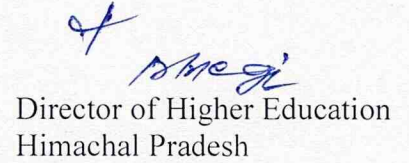 Director of Higher Education
Himachal Pradesh